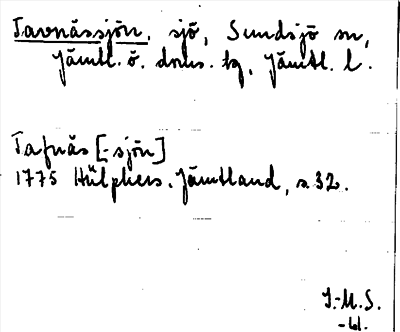 Tavnässjön, sjö, Sundsjö sn,
Jämtl. ö. doms. tg, Jämtl. l.
Tafnäs [-sjön]
1775 Hülphers. Jämtland, s. 32.
J.-M.S.
-61.